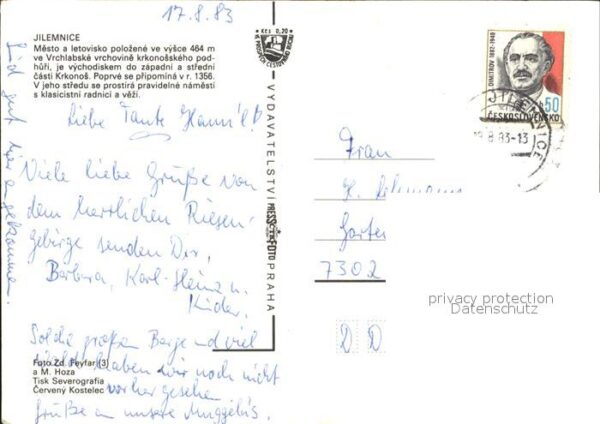 17.8.83
JILEMNICE
Město a letovisko položené ve výšce 464 m
ve Vrchlabské vrchovině krkonošského pod-
hůří, je východiskem do západní a střední
části Krkonoš. Poprvé se připomíná v r. 1356.
V jeho středu se prostírá pravidelné náměstí
s klasicistní radnicí a věží.
Liebe Tante
Viele liebe Grüße von
dem herrlichen Riesen-
gebirge senden Dir,
Barbara, Karl-Heinz u.
Kinder.
Solche großen Berge und viel
haben wir noch nicht
vorher gesehen
Grüße an unsere
Sind gut hier angekommen.
Foto Zd. Feyfar (3)
a M. Hoza
Tisk Severografia
Červený Kostelec
Kčs 0,20
VYDAVATELSTVÍ
PRESSFOTO
PRAHA
DIMITROV 1882-1949
50
ČESKOSLOVENSKO
JILEMNICE
8.83-13
Frau
7302
D D
privacy protection
Datenschutz